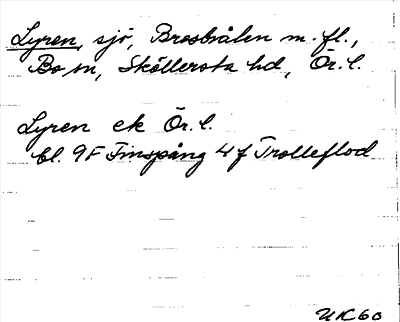 Lyren, sjö, Bresbrålen m.fl.,
Bo sn, Sköllersta hd, Ör.l.
Lyren ek Ör.l.
bl. 9F Finspång 4 f Trolleflod
UK60